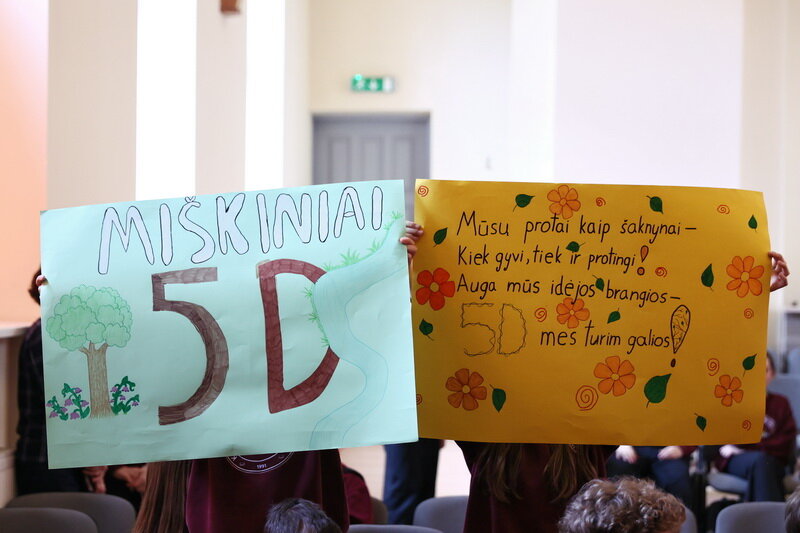 MIŠKINIAI
5D
Mūsų protai kaip šaknynai –
Kiek gyvi, tiek ir protingi!
Auga mūs idėjos brangios –
5D mes turim galios!
1991